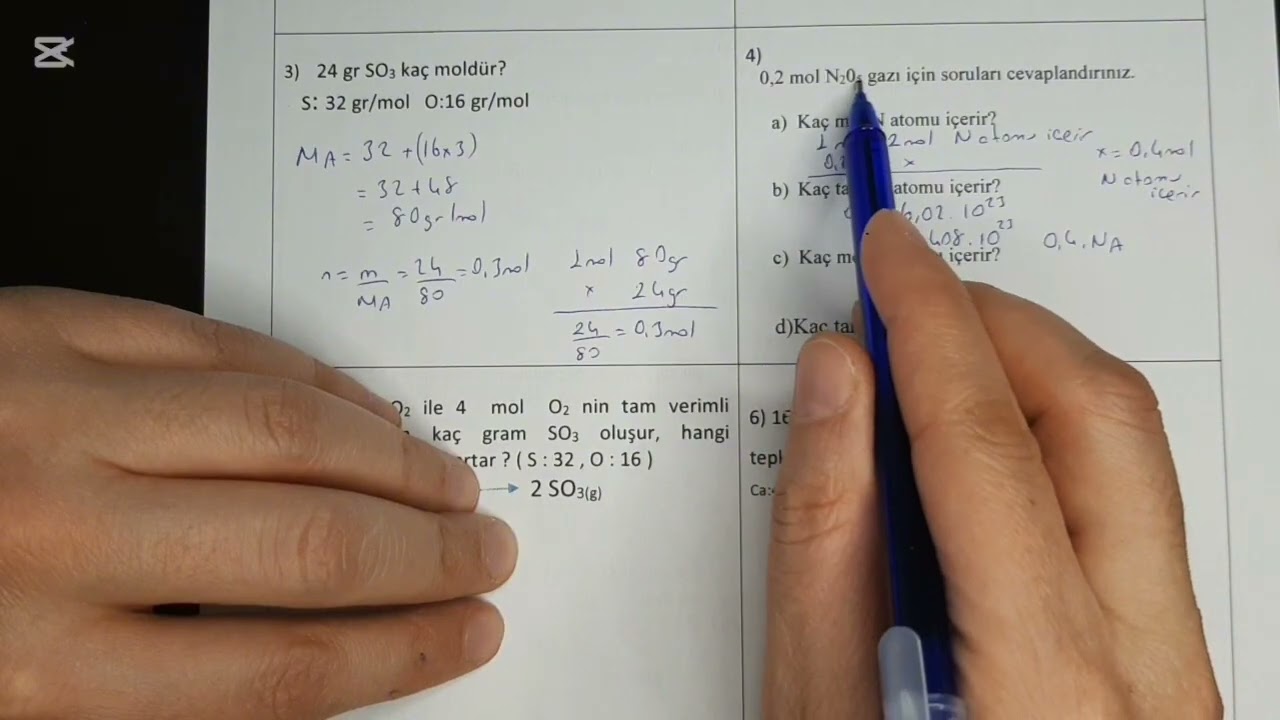 3) 24 gr SO₃ kaç moldür?
S: 32 gr/mol O:16 gr/mol
MA = 32 + (16x3)
= 32 + 48
= 80 gr/mol
n = m/MA = 24/80 = 0,3mol
1mol 80gr
x 24gr
24/80 = 0,3mol
4)
0,2 mol N₂0₅ gazı için soruları cevaplandırınız.
a) Kaç N atomu içerir?
2mol N atomu içerir
x
x = 0,4mol
N atomu
içerir
b) Kaç atomu içerir?
6,02.10²³
408.10²³ 0,4.NA
c) Kaç içerir?
d)Kaç
O₂ ile 4 mol O₂ nin tam verimli
kaç gram SO₃ oluşur, hangi
artar ? ( S : 32 , O : 16 )
→ 2 SO₃(g)
6)